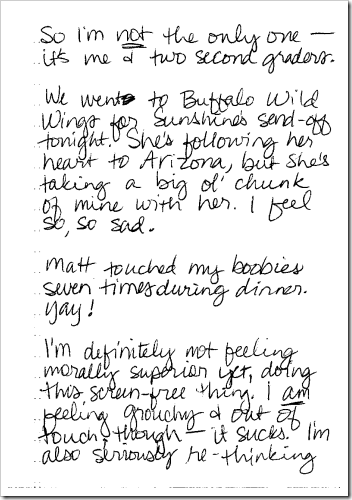 So I'm not the only one —
it's me & two second graders.
We went to Buffalo Wild
Wings for Sunshine's send-off
tonight. She's following her
heart to Arizona, but she's
taking a big ol' chunk
of mine with her. I feel
so, so sad.
Matt touched my boobies
seven times during dinner.
Yay!
I'm definitely not feeling
morally superior yet, doing
this screen-free thing. I am
feeling grouchy & out of
touch, though — it sucks. I'm
also seriously re-thinking